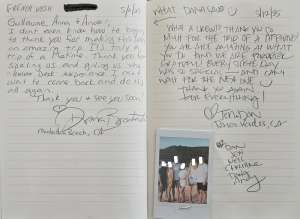 FRENCH WISH 5/12/25
Guillaume, Anna + Ander,
I don't even know how to begin
to thank you for making this such
an amazing trip. It's truly a
trip of a lifetime. Thank you for
spoiling us and giving us the
experience. I can't
want to come back and do it
all again.
Thank you + see you soon,
Manhattan Beach, CA
WHAT DANA SAID 5/12/25
WHAT A WEEK! THANK YOU SO
MUCH FOR THE TRIP OF A LIFETIME!
YOU ARE ALL AMAZING AT WHAT
YOU DO AND WE ARE FOREVER
GRATEFUL! EVERY SINGLE DAY
WAS SO SPECIAL AND CAN'T
WAIT FOR THE NEXT ONE
THANK YOU AGAIN
FOR EVERYTHING!
CA
DAN
JEN
NEIL
CHRISTINE
DANA